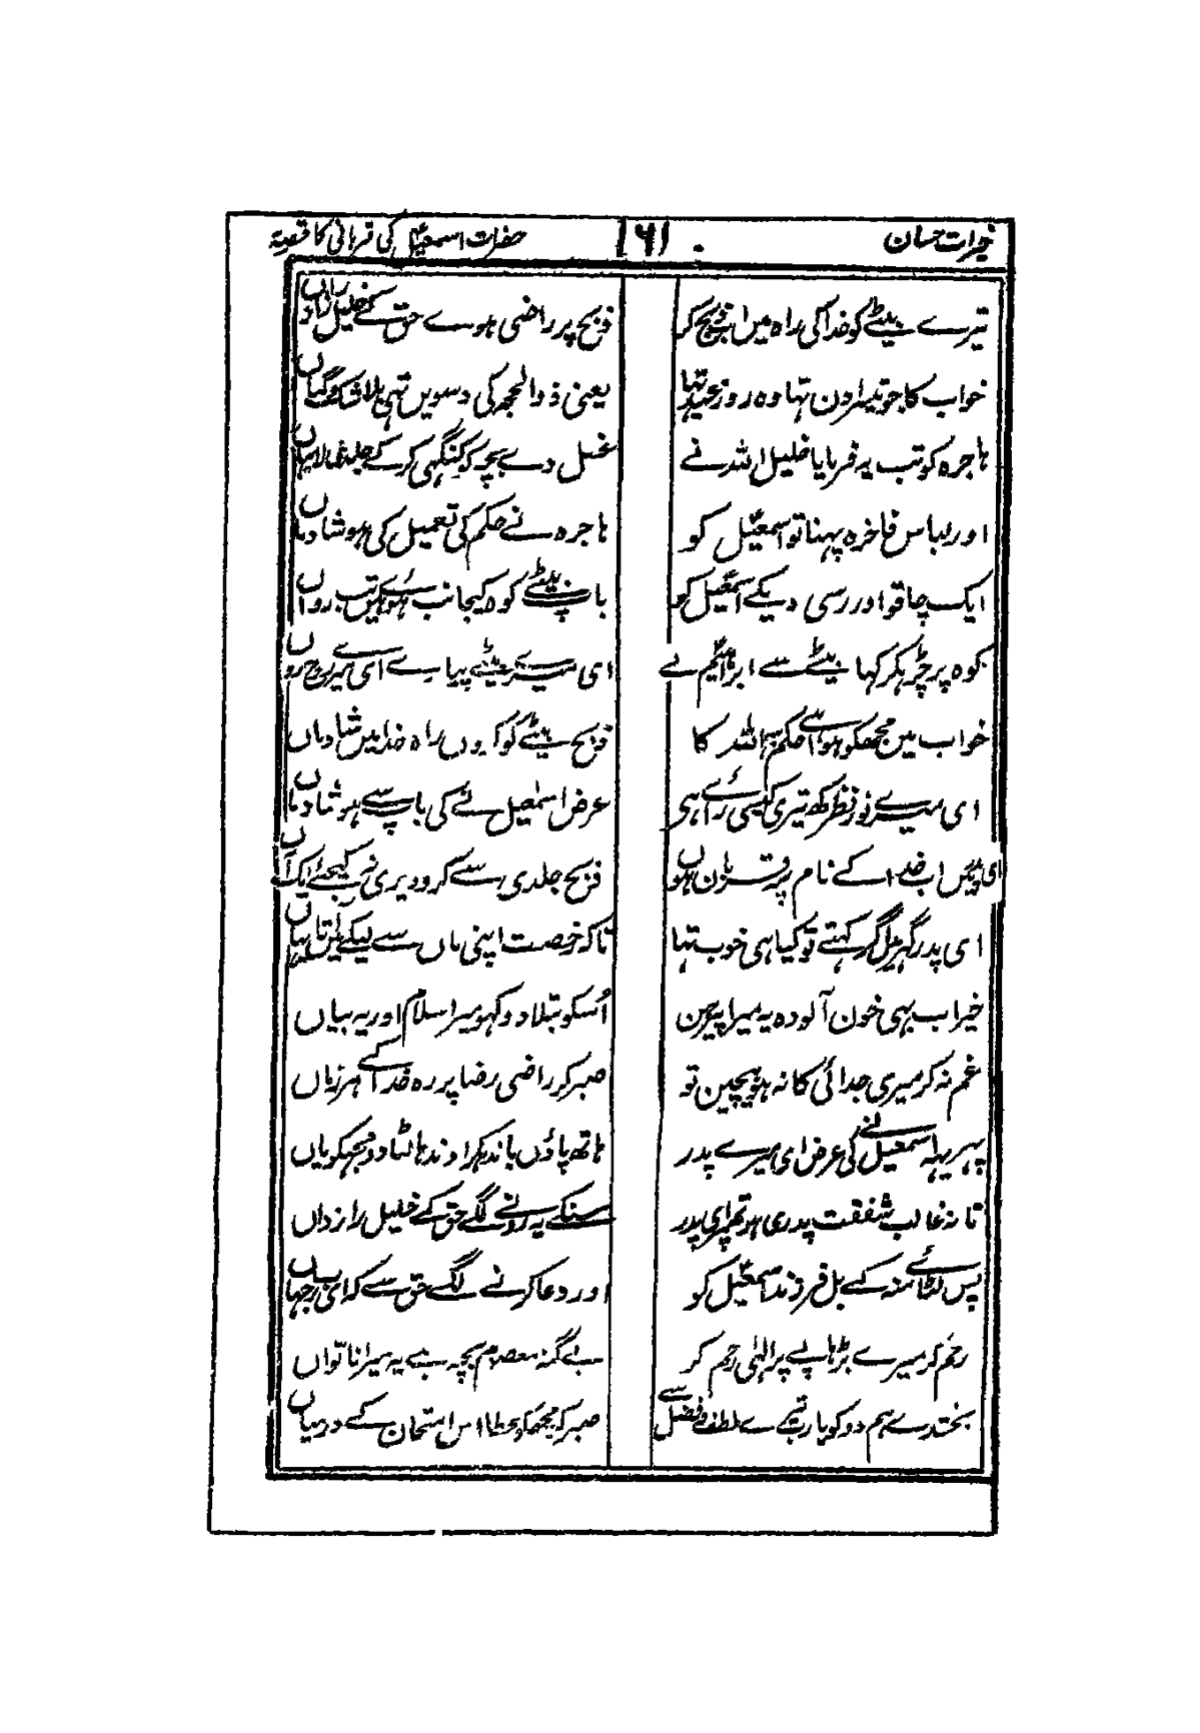 خیرات حسان
۱۶۱
حضرت اسمعیلؑ کی قربانی کا قصہ
تیرے بیٹے کو خدا کی راہ میں اب ذبح کر
ذبح پر راضی ہوے حق کے خلیل رازداں
خواب کا جو تیسرا دن تہا وہ روز عید تہا
یعنی ذوالحجہ کی دسویں تہی بلا شک و گماں
ہاجرہ کو تب یہ فرمایا خلیل اللہ نے
غسل دے بچہ کو کنگہی کر کے جلدی لا یہاں
اور لباس فاخرہ پہنا تو اسمعیلؑ کو
ہاجرہ نے حکم کی تعمیل کی ہو شادماں
ایک چاقو اور رسی دیکے اسمعیلؑ کو
باپ بیٹے کوہ کیجانب ہوئے ہیں تب رواں
کوہ پر چڑہکر کہا بیٹے سے ابراہیمؑ نے
ای میرے بیٹے پیارے ای میرے روح رواں
خواب میں مجھکو ہوا ہے حکم یہ اللہ کا
ذبح بیٹے کو کروں راہ خدا میں شادماں
ای میرے نور نظر کہہ تیری کیسی رائے ہی
عرض اسمٰعیل نے کی باپ سے ہو شادماں
ای پدر میں اب خدا کے نام پر قربان ہوں
ذبح جلدی سے کرو دیری نہ کیجئے ایک آں
ای پدر گہر میں گر کہتے تو کیا ہی خوب تہا
تاکہ رخصت اپنی ماں سے لیکے میں آتا یہاں
خیر اب یہی خون آلودہ یہ میرا پیرہن
اُسکو بتلادو کہو میرا سلام اور یہ بیاں
غم نہ کر میری جدائی کا نہ ہو بیچین تو
صبر کر راضی رضا پر رہ خدا کے ہر زماں
پہر یہہ اسمعیل نے کی عرض ای میرے پدر
ہاتھ پاؤں باندہکر اوندہا لٹا دو مجہکو یاں
تا نہ غالب شفقت پدری ہو تم پر ای پدر
سنکے یہ رونے لگے حق کے خلیل رازداں
پس لٹائے منہ کے بل فرزند اسمعیلؑ کو
اور دعا کرنے لگے حق سے کہ ای رب جہاں
رحم کر میرے بڑہاپے پر الٰہی رحم کر
بے گنہ معصوم بچہ ہے یہ میرا ناتواں
بخشدے ہم دو کو یارب تیرے لطف و فضل سے
صبر کر مجھکو عطا اس امتحان کے درمیاں